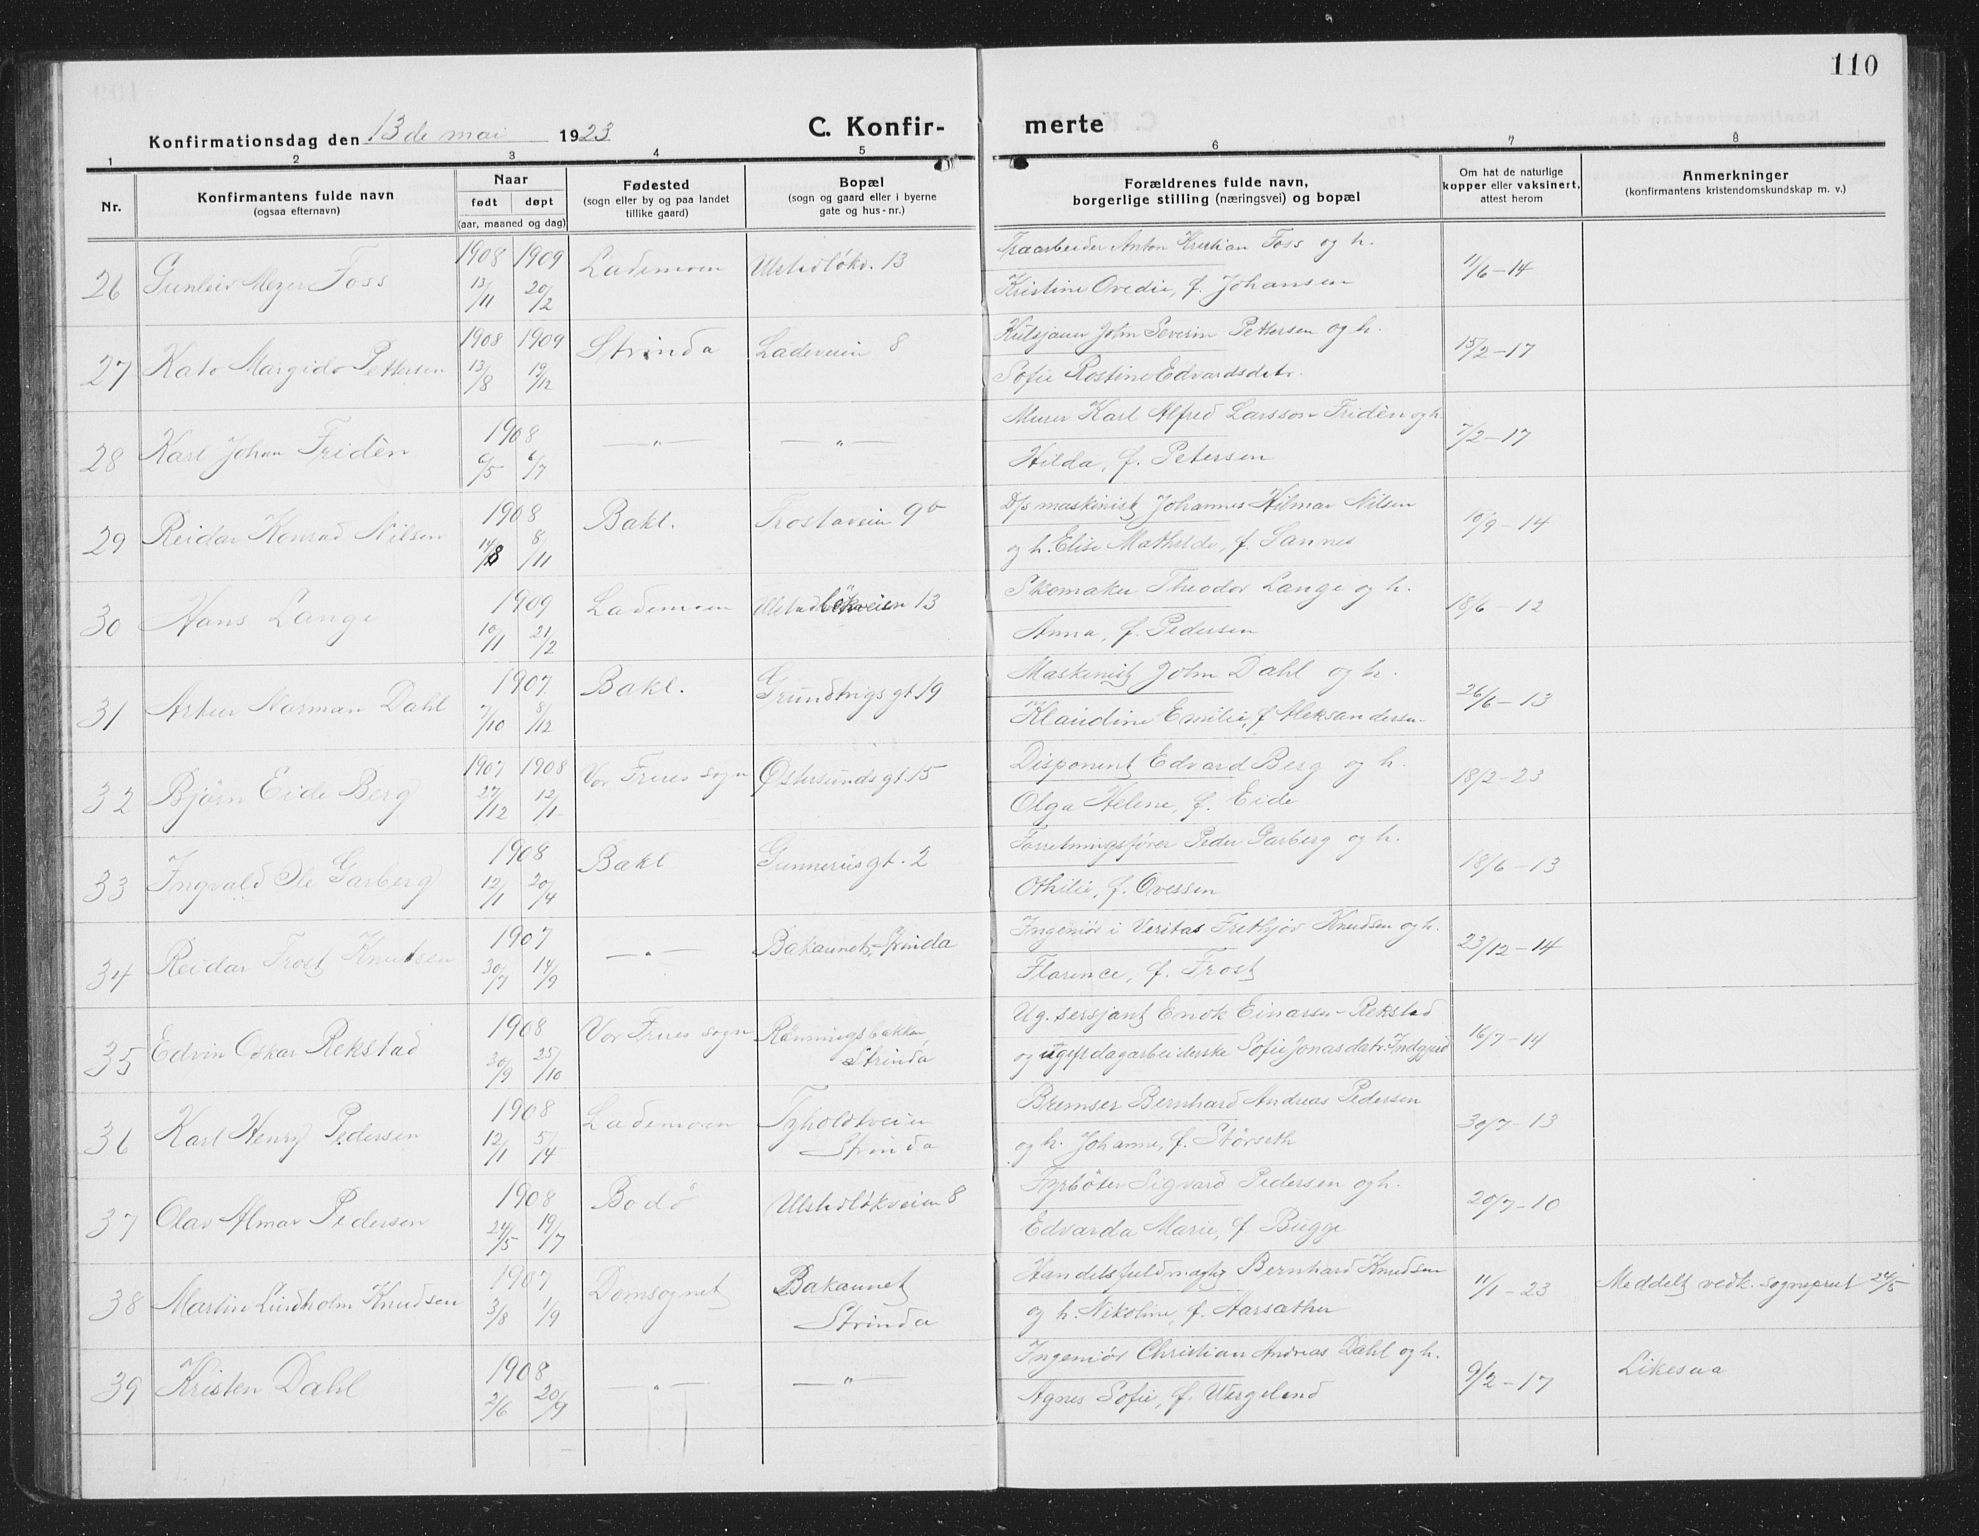 110
Konfirmationsdag den 13de mai 1923 C. Konfir- merte
1 2 3 4 5 6 7 8
Nr. Konfirmantens fulde navn (ogsaa efternavn) Naar født døpt (aar, maaned og dag) Fødested (sogn eller by og paa landet tillike gaard) Bopæl (sogn og gaard eller i byerne gate og hus-nr.) Forældrenes fulde navn, borgerlige stilling (næringsvei) og bopæl Om hat de naturlige kopper eller vaksinert, attest herom Anmerkninger (konfirmantens kristendomskundskap m. v.)
26 Gunleiv Meyer Foss 1908 13/11 1909 20/2 Lademoen Ulstadløkv. 13 Anton Kristian Foss og h. 11/6-14
Kristine Ovedie, f. Johansen
27 Kato Margido Pettersen 1908 13/8 1909 19/12 Strinda Ladeveien 8 Kulsjauer John Severin Pettersen og h. 15/2-17
Sofie Rostine Edvardsdatr.
28 Karl Johan Fridèn 1908 6/5 6/7 —"— —"— Murer Karl Alfred Larsson-Fridèn og h. 7/2-17
Hilda, f. Petersen
29 Reidar Konrad Nilsen 1908 14/8 8/11 Bakl. Trostaveien 9b D/s maskinist Johannes Hilmar Nilsen 10/9-14
og h. Elise Mathilde, f. Sannes
30 Hans Lange 1909 10/1 21/2 Lademoen Ulstadløkveien 13 Skomaker Theodor Lange og h. 18/6-12
Anna, f. Pedersen
31 Artur Norman Dahl 1907 7/10 8/12 Bakl. Grundtvigsgt 19 Maskinist John Dahl og h. 26/6-13
Klaudine Emilie, f. Aleksandersen
32 Bjørn Eide Berg 1907 27/12 1908 12/1 Vor Frues sogn Østersundsgt 15 Disponent Edvard Berg og h. 18/2-23
Olga Helene, f. Eide
33 Ingvald Ole Garberg 1908 12/1 20/4 Bakl Gunnerusgt. 2 Forretningsfører Peder Garberg og h. 18/6-13
Othilie, f. Ovessen
34 Reidar Frost Knudsen 1907 30/7 14/9 —"— Bakaunet, Strinda Ingeniör i Veritas Frethjov Knudsen og h. 23/12-14
Florence, f. Frost
35 Edvin Oskar Rekstad 1908 30/9 25/10 Vor Frues sogn Rønningsbakken Strinda Ug. sersjant Enok Einarsen-Rekstad 16/7-14
og ugift dagarbeiderske Sofie Jonasdatr.
36 Karl Henry Pedersen 1908 12/1 5/4 Lademoen Tyholdtveien Strinda Bremser Bernhard Andreas Pedersen 30/7-13
og h. Johanne, f. Störseth
37 Olav Almar Pedersen 1908 24/5 19/7 Bodö Ulstedløkveien 8 Fyrböter Sigvard Pedersen og h. 20/7-10
Edvarda Marie, f. Bugge
38 Martin Lindholm Knudsen 1907 3/8 1/9 Domsognet Bakaunet Strinda Handelsfuldmægtig Bernhard Knudsen 11/1-23 Meddelt vedk. sogneprest 24/5
og h. Nikoline, f. Aarsæther
39 Kristen Dahl 1908 2/6 20/9 —"— —"— Ingeniör Christian Andreas Dahl og h. 9/2-17 Likesaa
Agnes Sofie, f. Wergeland